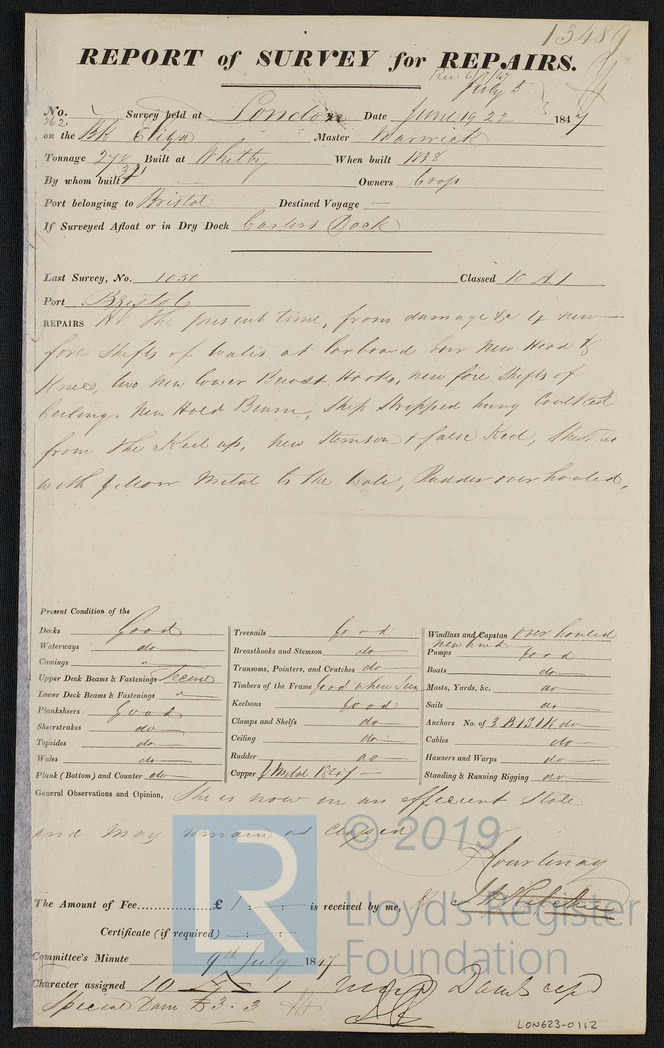 13489
REPORT of SURVEY for REPAIRS.
Rec. 6/7/47
July 5
No. 362 Survey held at London Date June 19 22 1847
on the Bk Eliza Master Warwick
Tonnage 278 Built at Whitby When built 1838
By whom built — Owners Cross
Port belonging to Bristol Destined Voyage —
If Surveyed Afloat or in Dry Dock Carters Dock
Last Survey, No. 1050 Classed 10 A 1
Port Bristol
REPAIRS At the present time, from damage &c 4 new
fore shifts of wales at larboard bow New Head &
Knees, two new lower Breast Hooks, new fore shifts of
Ceiling. New Hold Beam, Ship Stripped hung Caulked
from the Keel up, new Stemson & false Keel, Sheathed
with yellow Metal to the Wales, Rudder overhauled,
Present Condition of the
Decks Good
Waterways do
Comings "
Upper Deck Beams & Fastenings Secure
Lower Deck Beams & Fastenings "
Planksheers Good
Sheerstrakes do
Topsides do
Wales do
Plank (Bottom) and Counter do
Treenails Good
Breasthooks and Stemson do
Transoms, Pointers, and Crutches do
Timbers of the Frame Good where seen
Keelsons Good
Clamps and Shelfs do
Ceiling do
Rudder do
Copper Y Metal 1847
Windlass and Capstan overhauled
new
Pumps Good
Boats do
Masts, Yards, &c. do
Sails do
Anchors No. of 3 B 1 S 1 K do
Cables do
Hawsers and Warps do
Standing & Running Rigging do
General Observations and Opinion, She is now in an efficient State
and may remain as classed
Courtenay
The Amount of Fee £ 1 : : is received by me,
Certificate (if required) : :
Committee's Minute 9th July 1847
Character assigned 10 A 1
Special Dam £3.3
© 2019
Lloyd's Register
Foundation
LR
LON623-0112